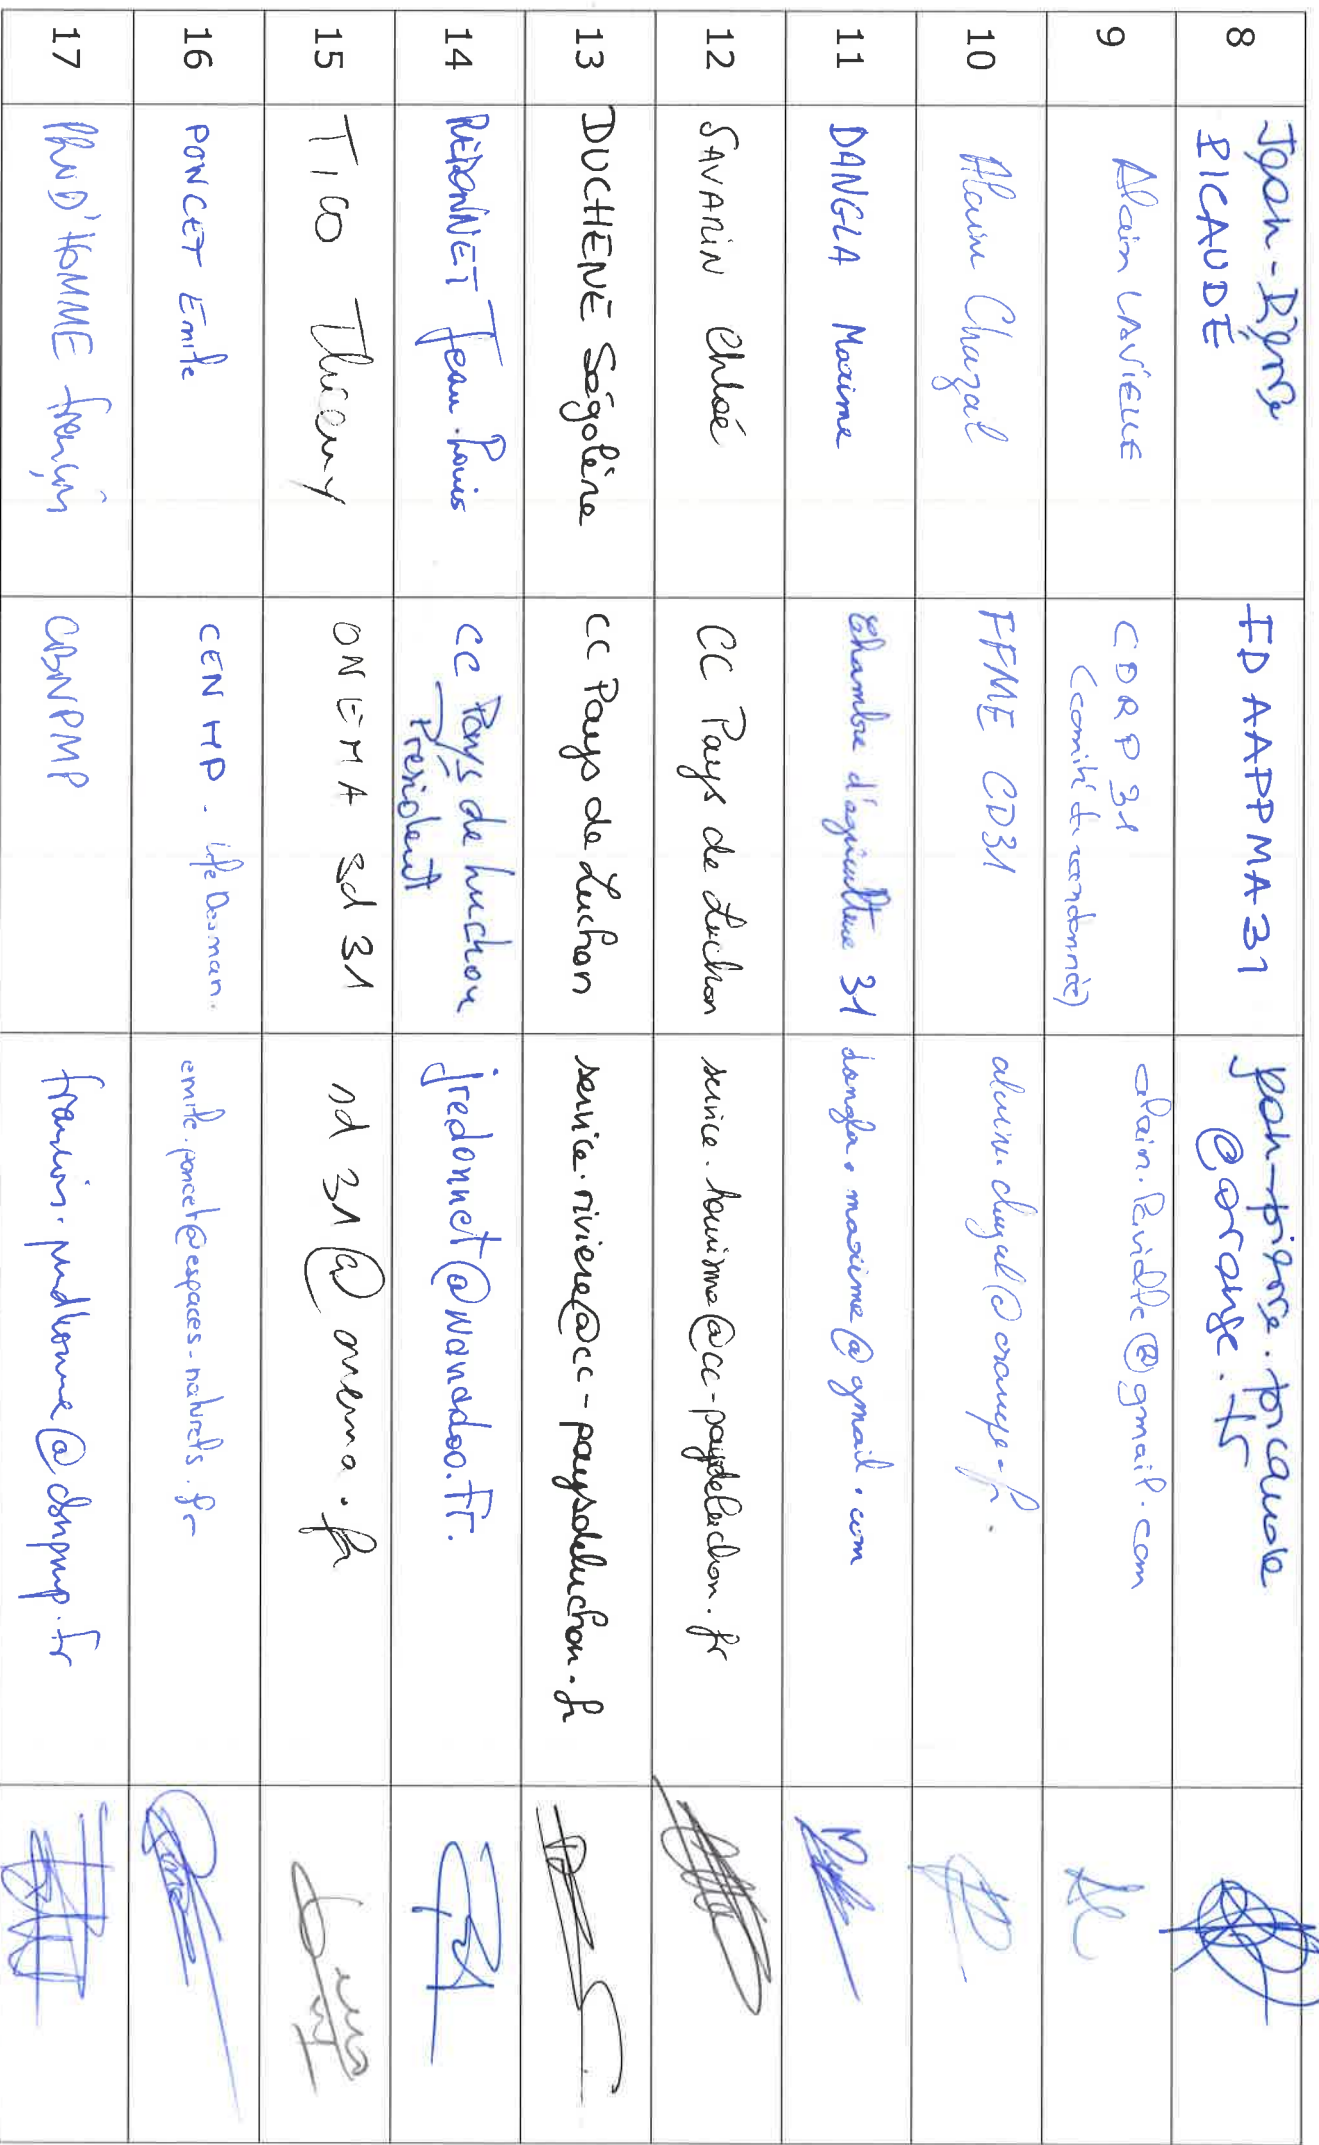 8 Jean-Pierre PICAUDE FDAAPPMA31 jean-pierre.picaude@orange.fr
9 Alain LAVIELLE CDRP 31 (comité de randonnée) alain.lavielle@gmail.com
10 Alain Chazal FFME CD31 alain.chazal@orange.fr.
11 DANGLA Maxime Chambre d'agriculture 31 dangla.maxime@gmail.com
12 SAVARIN Chloé CC Pays de Luchon service.tourisme@cc-paysdeluchon.fr
13 DUCHENE Ségolène CC Pays de Luchon service.riviere@cc-paysdeluchon.fr
14 REDONNET Jean-Louis CC Pays de Luchon Président jredonnet@wanadoo.Fr.
15 TICO Thierry ONEMA sd 31 sd31@onema.fr
16 PONCET Emile CEN MP. Life Desman. emile.poncet@espaces-naturels.fr
17 PRUD'HOMME François CBNPMP francois.prudhomme@cbnpmp.fr